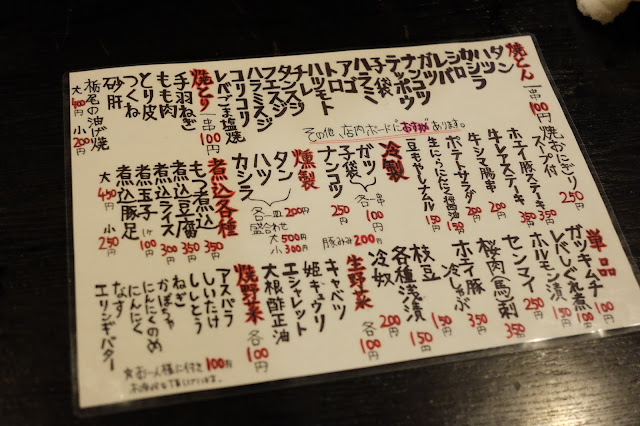 焼とん 一串100円
タン
ハツ
カシラ
シロ
レバ
ガツ
ナンコツ
テッポウ
子袋
ハラミ
アゴ
トロ
ハツモト
チレ
タンスジ
フエスジ
ハラミスジ
コリコリ
レバごま塩焼
焼とり 一串100円
手羽ねぎ
もも肉
とり皮
つくね
砂肝
栃尾の油げ焼 大400円 小200円
その他、店内ボードにおすすめあります。
焼おにぎり 250円
スープ付
ホエイ豚ステキ 350円
牛レアステーキ 350円
牛シマ腸串 200円
ポテトサラダ 150円
生にらにんにく醤油 150円
豆もやしナムル 150円
冷製 各一串100円
ガツ
子袋
ナンコツ 250円
豚みみ 200円
燻製
タン
ハツ
カシラ
各一皿200円
盛合わせ 大500円 小300円
煮込各種
もつ煮込 350円
煮込豆腐 350円
煮込ライス 300円
煮込玉子 1ケ100円
煮込豚足 大450円 小250円
単品
ガツキムチ 100円
レバしぐれ煮 100円
ホルモン漬 150円
センマイ 250円
桜肉馬刺 350円
ホエイ豚冷しゃぶ 350円
枝豆 150円
各種浅漬 150円
冷奴 200円
生野菜 各100円
キャベツ
姫キュウリ
エシャレット
大根酢正油
焼野菜 各100円
アスパラ
しいたけ
ししとう
ねぎ
かぼちゃ
にんにくのめ
にんにく
なす
エリンギバター
お一人様に付き100円